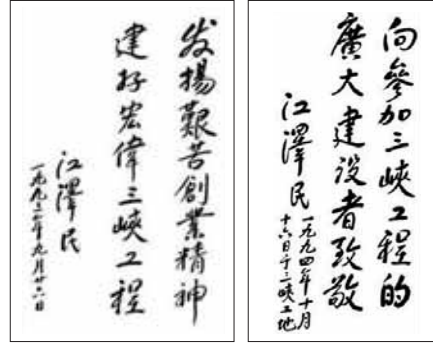 发揚艱苦創業精神
建好宏偉三峽工程
江澤民
一九九三年九月廿六日
向參加三峽工程的
廣大建设者致敬
江澤民
一九九四年十月
十六日于三峽工地